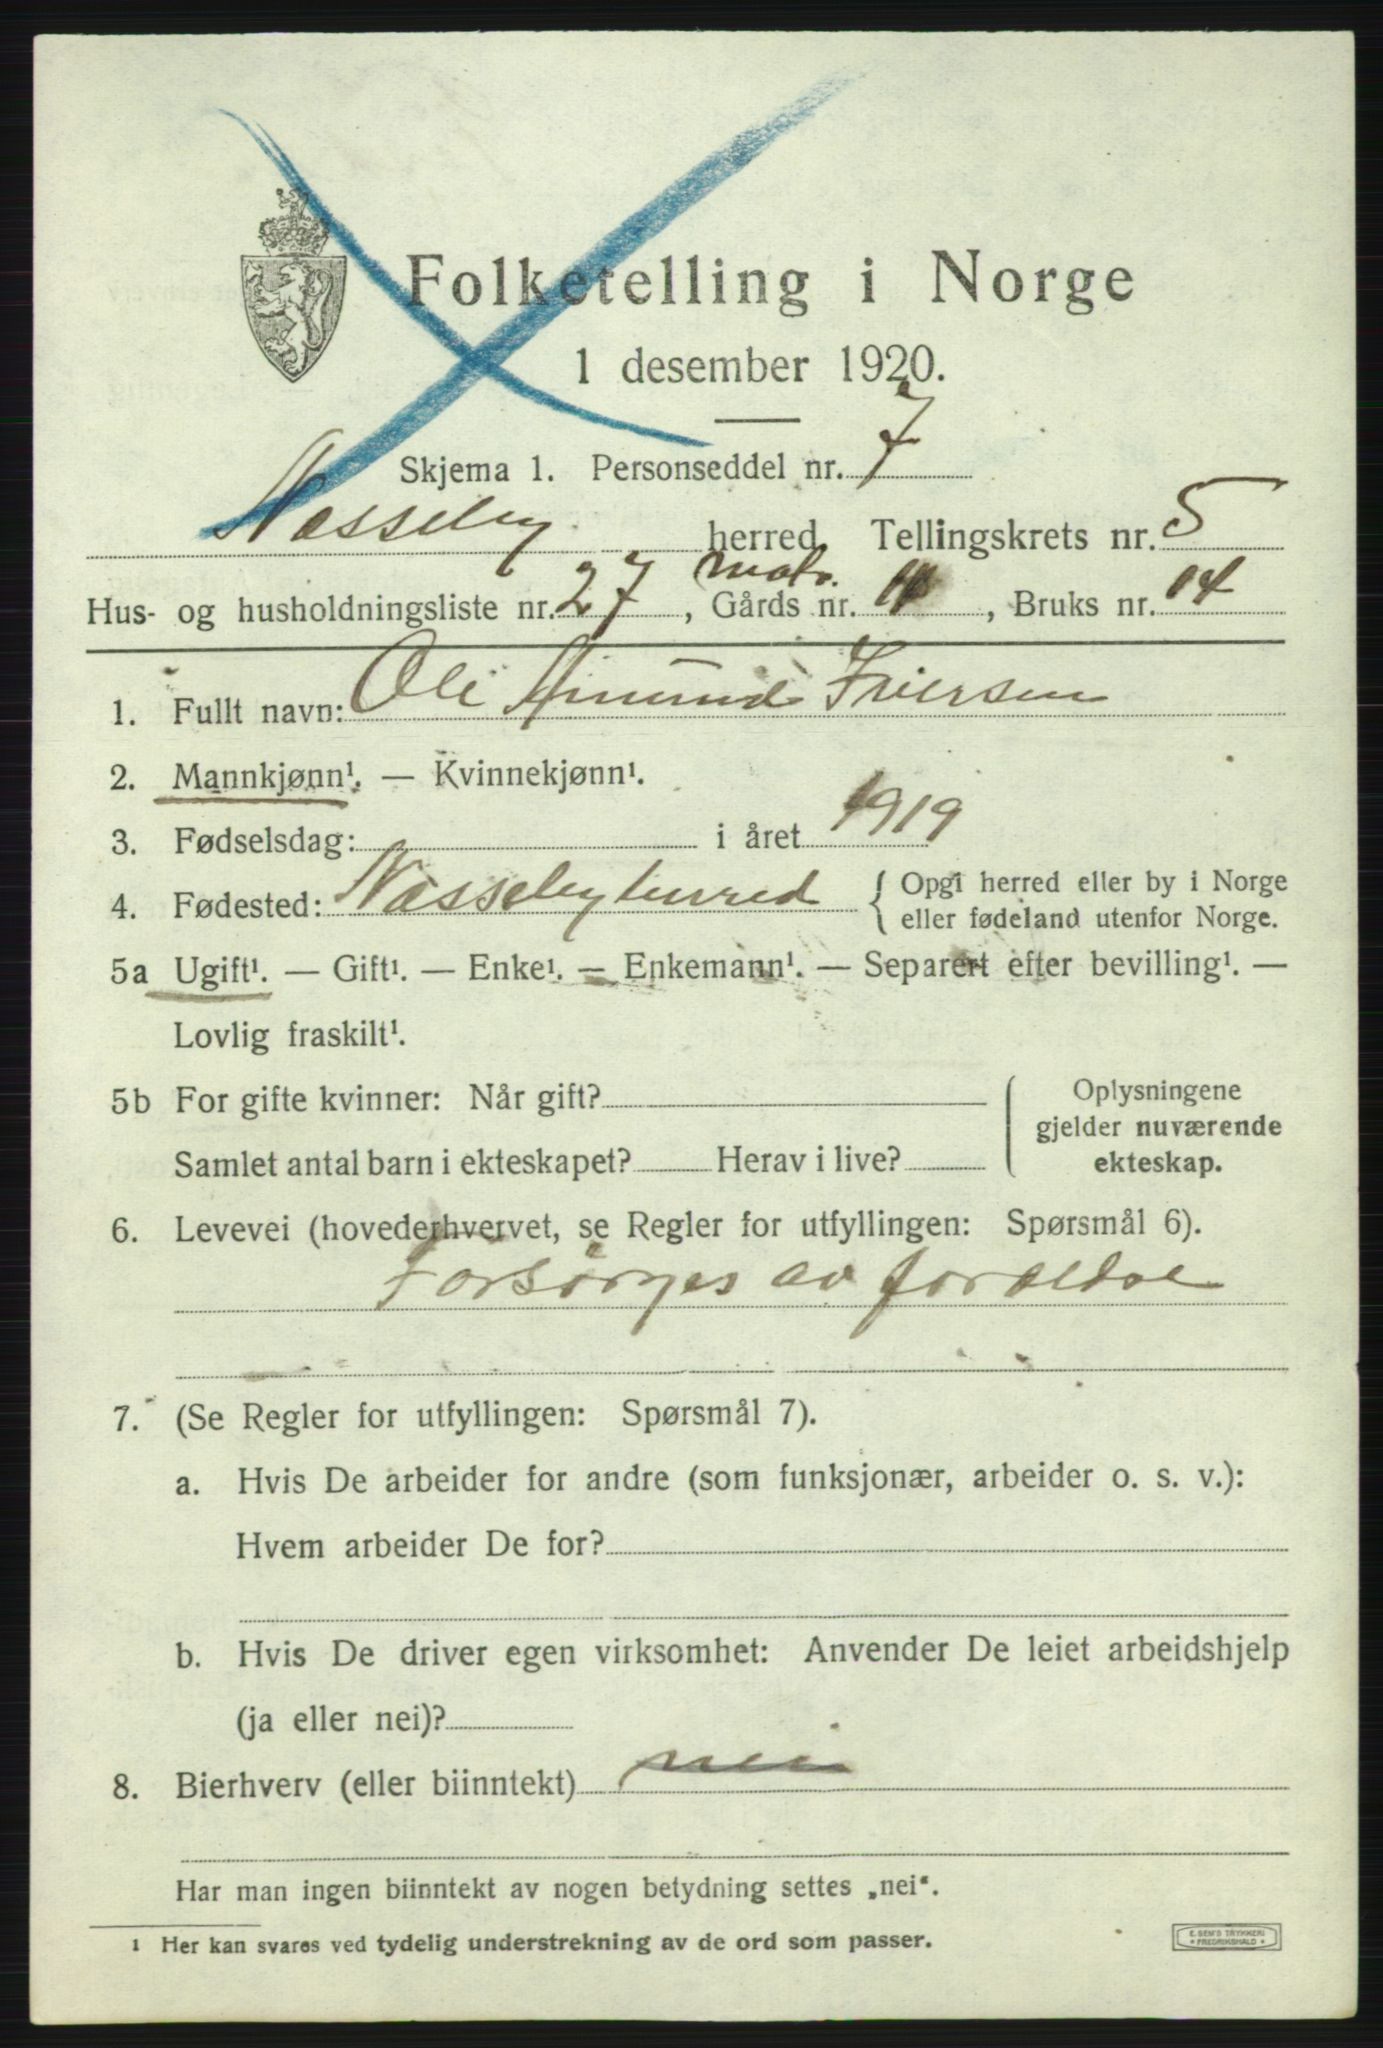 Folketelling i Norge
1 desember 1920.
Skjema 1. Personseddel nr. 7
Nesseby herred. Tellingskrets nr. 5
matr.
Hus- og husholdningsliste nr. 27, Gårds nr. , Bruks nr. 14
1. Fullt navn: Ole Amund Iversen
2. Mannkjønn¹. — Kvinnekjønn¹.
3. Fødselsdag: i året 1919
4. Fødested: Nesseby herred { Opgi herred eller by i Norge
eller fødeland utenfor Norge.
5a Ugift¹. — Gift¹. — Enke¹. — Enkemann¹. — Separert efter bevilling¹. —
Lovlig fraskilt¹.
5b For gifte kvinner: Når gift?
Samlet antal barn i ekteskapet? Herav i live?
Oplysningene
gjelder nuværende
ekteskap.
6. Levevei (hovederhvervet, se Regler for utfyllingen: Spørsmål 6).
Forsørges av forældre
7. (Se Regler for utfyllingen: Spørsmål 7).
a. Hvis De arbeider for andre (som funksjonær, arbeider o. s. v.):
Hvem arbeider De for?
b. Hvis De driver egen virksomhet: Anvender De leiet arbeidshjelp
(ja eller nei)?
8. Bierhverv (eller biinntekt) nei
Har man ingen biinntekt av nogen betydning settes „nei“.
1 Her kan svares ved tydelig understrekning av de ord som passer.
E. SEM'S TRYKKERI
* FREDRIKSHALD *